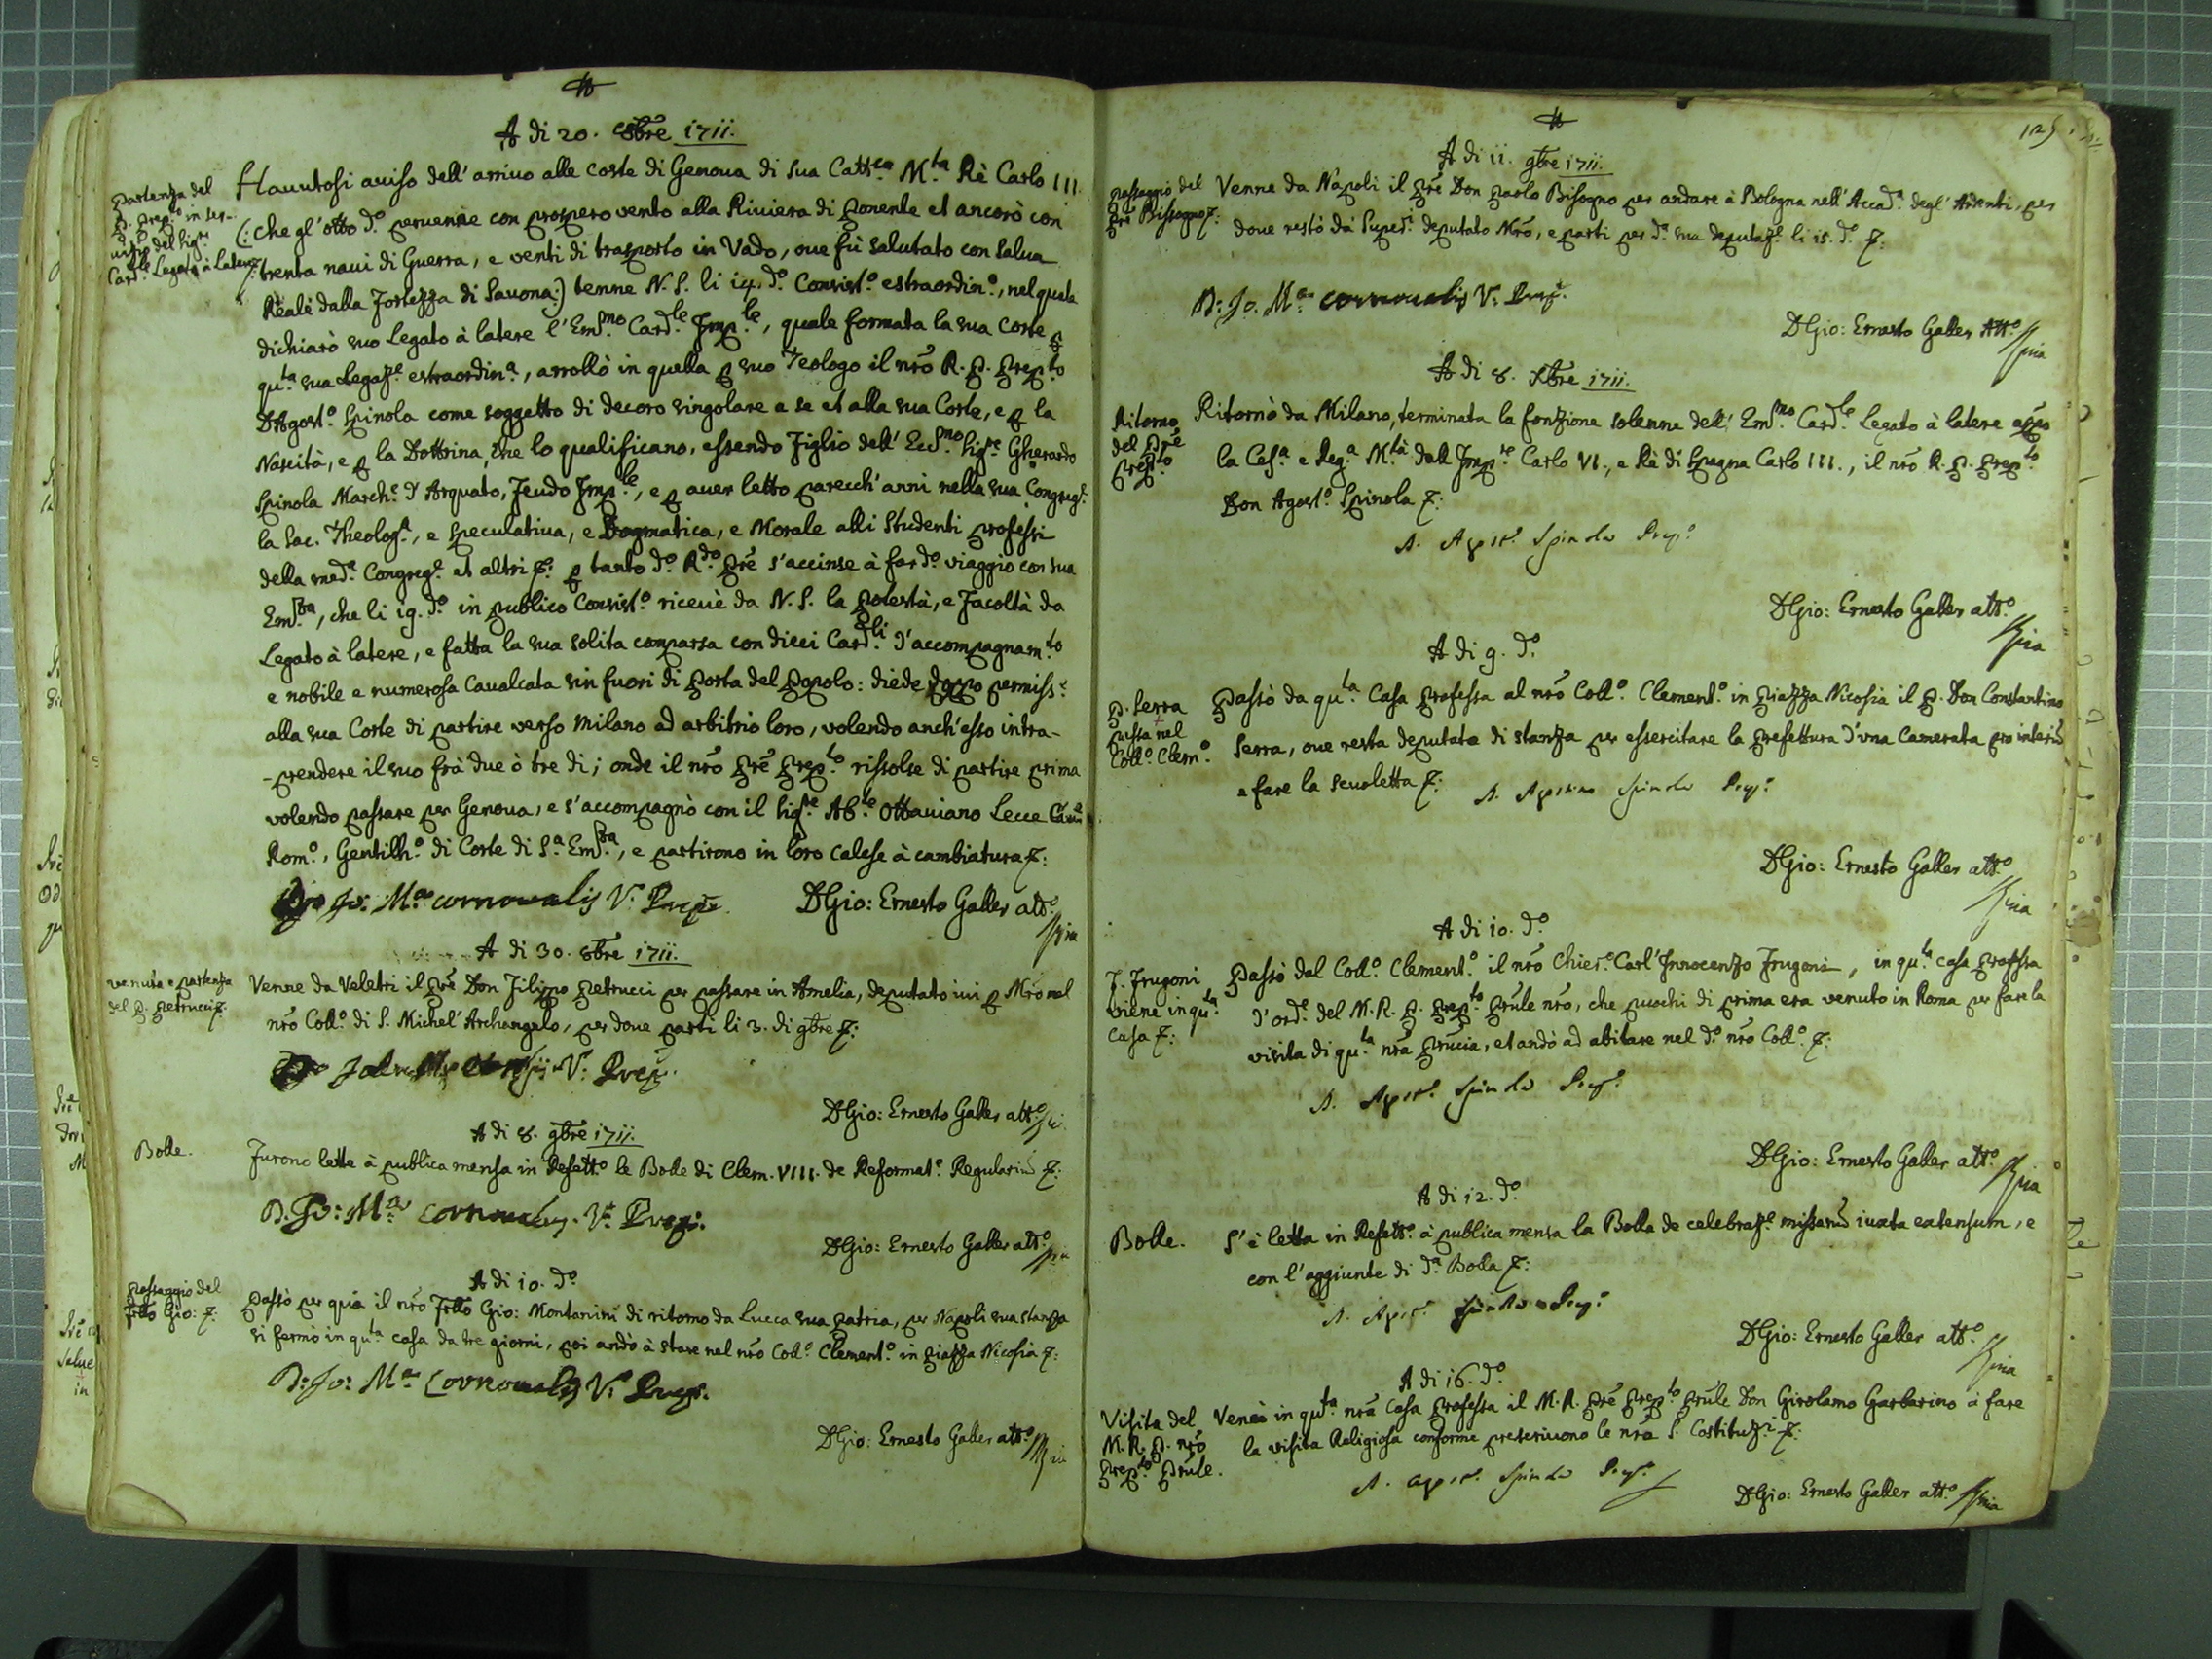 A di 20. 8bre 1711.
Partenza del
P. Prep.to in ser-
uizio del Sig.r
Card.le Legato à Latere
Hauutosi auiso dell'arriuo alle coste di Genoua di Sua Catt.ca M.ta Rè Carlo III.
(: che gl'otto d.o peruenne con prospero vento alla Riuiera di Ponente et ancorò con
trenta naui di Guerra, e venti di trasporto in Vado, oue fù salutato con salua
Reale dalla Fortezza di Sauona:) tenne N. S. li 14. d.o Consist.o estraordin.o, nel quale
dichiarò suo Legato à latere l'Em.mo Card.le Imp.le, quale formata la sua Corte p
qu.ta sua Legaz.e estraordin.a, arrollò in quella p suo Teologo il nrõ R. P. Prep.to
D Agost.o Spinola come soggetto di decoro singolare a se et alla sua Corte, e p la
Nascità, e p la Dottrina, che lo qualificano, essendo Figlio dell'Ecc.mo Sig.re Gherardo
Spinola March.e d'Arquato, Feudo Imp.le, e p auer letto parecch'anni nella sua Congreg.e
la Sac. Theolog.a, e Speculatiua, e Dogmatica, e Morale alli Studenti Professi
della med.a Congreg.e et altri &: p tanto d.o R.do Prẽ s'accinse à far d.o viaggio con sua
Em.za, che li 19. d.o in publico Consist.o riceuè da N. S. la Potestà, e Facoltà da
Legato à latere, e fatta la sua solita comparsa con dieci Card.li d'accompagnam.to
e nobile e numerosa Caualcata sin fuori di Porta del Popolo: diede doppo permiss.e
alla sua Corte di partire verso Milano ad arbitrio loro, volendo anch'esso intra-
-prendere il suo frà due ò tre di; onde il nrõ Prẽ Prep.to rissolse di partire prima
volendo passare per Genoua, e s'accompagnò con il Sig.re Ab.te Ottauiano Lecce
Rom.o, Gentilh.o di Corte di S.a Em.za, e partirono in loro calesse à cambiatura &:
Jo: M.a Cornoualis V. Prep.
D Gio: Ernesto Galler att.o
A di 30. 8bre 1711.
venuta e partenza
del P. Petrucci &:
Venne da Veletri il Prẽ Don Filippo Petrucci per passare in Amelia, deputato iui p Mrõ nel
nrõ Coll.o di S. Michel'Archangelo, per doue parti li 3. di 9bre &:
V. Prep.
D Gio: Ernesto Galler att.o
A di 8. 9bre 1711.
Bolle.
Furono lette à publica mensa in Refett.o le Bolle di Clem. VIII. de Reformat.e Regulariũ &:
D. Jo: M.a Cornoualis. V. Prep.
D Gio: Ernesto Galler att.o
A di 10. d.o
Passaggio del
Frtlo Gio: &:
Passò per quà il nrõ Frtlo Gio: Montanini di ritorno da Lucca sua patria, per Napoli sua stanza
si fermò in qu.ta casa da tre giorni, poi andò à stare nel nrõ Coll.o Clement.o in piazza Nicosia &:
D: Jo: M.a Cornoualis V. Prep.
D Gio: Ernesto Galler att.o
125
A di 11. 9bre 1711.
passaggio del
Prẽ Bissogno &:
Venne da Napoli il Prẽ Don Paolo Bisogno per andare à Bologna nell'Accad.a degl'Ardenti, per
doue restò dà Super.i deputato Mrõ, e parti per d.a sua deputaz.e li 15. d.o &:
D: Jo. M.a Cornoualis V. Prep.
D Gio: Ernesto Galler Att.o
A di 8. Xbre 1711.
Ritorno
del Prẽ
Prep.to
Ritornò da Milano, terminata la fonzione solenne dell'Em.mo Card.le Legato à latere appo
la Ces.a e Reg.a M.tà dell Imp.re Carlo VI., e Rè di Spagna Carlo III., il nrõ R. P. Prep.to
Don Agost.o Spinola &:
D. Agost.o Spinola Prep.o
D Gio: Ernesto Galler att.o
A di 9. d.o
P. Serra
passa nel
Coll.o Clem.o
Passò da qu.ta Casa Professa al nrõ Coll.o Clement.o in Piazza Nicosia il P. Don Constantino
Serra, oue resta deputato di stanza per essercitare la Prefettura d'vna Camerata pro interim
e fare la scuoletta &:
D. Agostino Spinola Prep.o
D Gio: Ernesto Galler att.o
A di 10. d.o
F. Frugoni
viene in qu.ta
casa &:
Passò dal Coll.o Clement.o il nrõ Chier.o Carl'Innocenzo Frugoni, in qu.ta casa Professa
d'ord.e del M. R. P. Prep.to Prũle nrõ, che puochi di prima era venuto in Roma per fare la
visita di qu.ta nrã Prũcia, et andò ad abitare nel d.o nrõ Coll.o &:
D. Agost.o Spinola Prep.o
D Gio: Ernesto Galler att.o
A di 12. d.o
Bolle.
S'è letta in Refett.o à publica mensa la Bolla de celebraz.e missarũ iuxta extensum, e
con l'aggiunte di d.a Bolla &:
D. Agost.o Spinola Prep.o
D Gio: Ernesto Galler att.o
A di 16. d.o
Visita del
M. R. P. nrõ
Prep.to Prũle.
Venne in qu.ta nrã Casa Professa il M. R. Prẽ Prep.to Prũle Don Girolamo Garbarino à fare
la visita Religiosa conforme prescriuono le nrẽ S. Costituz.i &:
D. Agost.o Spinola Prep.o
D Gio: Ernesto Galler att.o